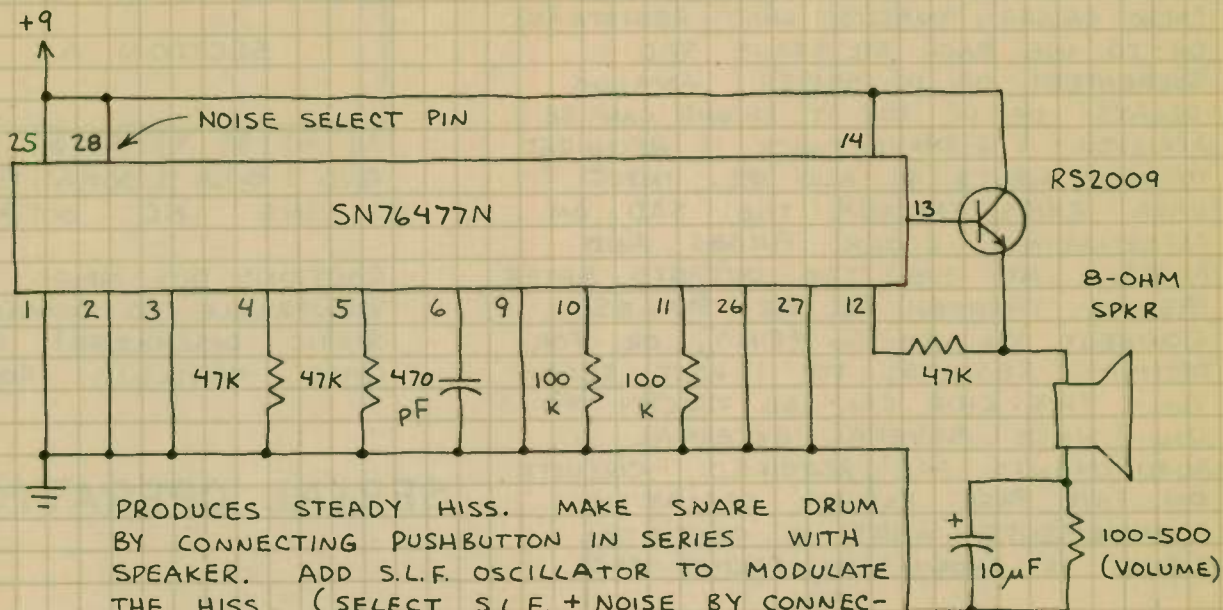 +9
NOISE SELECT PIN
25
28
14
SN76477N
13
RS2009
8-OHM
SPKR
1
2
3
4
5
6
9
10
11
26
27
12
47K
47K
470
pF
100
K
100
K
47K
PRODUCES STEADY HISS. MAKE SNARE DRUM
BY CONNECTING PUSHBUTTON IN SERIES WITH
SPEAKER. ADD S.L.F. OSCILLATOR TO MODULATE
THE HISS. (SELECT S.L.F. + NOISE BY CONNEC-
+
10µF
100-500
(VOLUME)